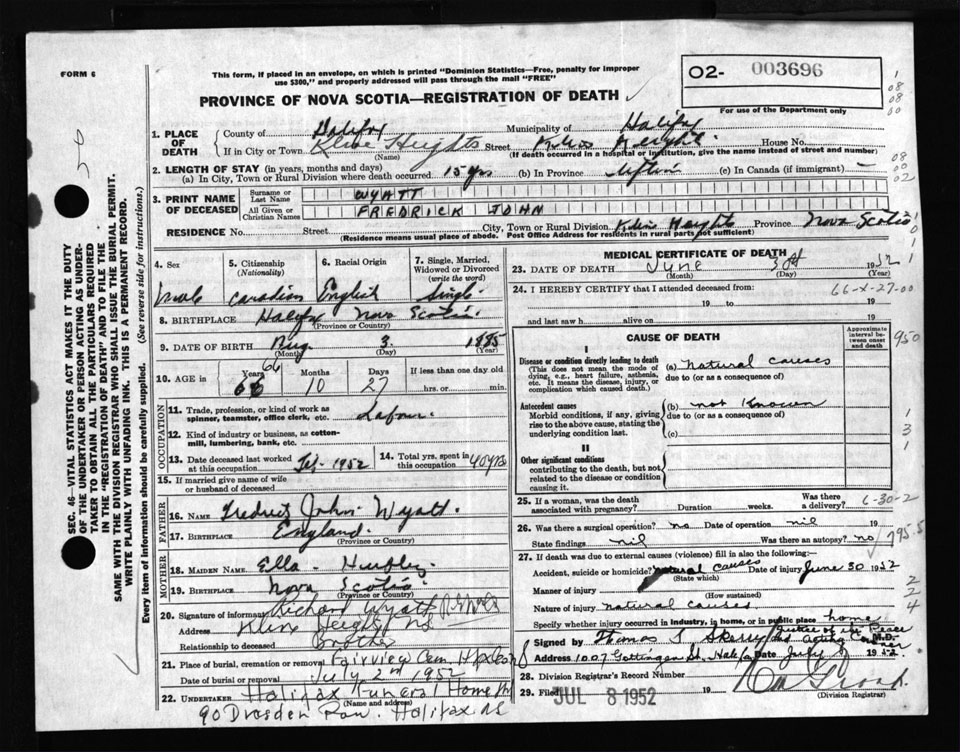 FORM 6
This form, if placed in an envelope, on which is printed "Dominion Statistics—Free, penalty for improper
use $300," and properly addressed will pass through the mail "FREE"
02- 003696
For use of the Department only
PROVINCE OF NOVA SCOTIA—REGISTRATION OF DEATH
1. PLACE OF DEATH
County of Halifax Municipality of Halifax
If in City or Town Kline Heights Street Kline Heights House No.
(Name) (If death occurred in a hospital or institution, give the name instead of street and number)
2. LENGTH OF STAY (in years, months and days)
(a) In City, Town or Rural Division where death occurred 15 yrs (b) In Province lifetime (c) In Canada (if immigrant) —
3. PRINT NAME OF DECEASED
Surname or Last Name WYATT
All Given or Christian Names FREDRICK JOHN
RESIDENCE No. Street City, Town or Rural Division Kline Heights Province Nova Scotia
(Residence means usual place of abode. Post Office Address for residents in rural parts not sufficient)
4. Sex
male
5. Citizenship (Nationality)
Canadian
6. Racial Origin
English
7. Single, Married, Widowed or Divorced (write the word)
Single
8. BIRTHPLACE Halifax Nova Scotia
(Province or Country)
9. DATE OF BIRTH Aug 3 1885
(Month) (Day) (Year)
10. AGE in Years 66 Months 10 Days 27 If less than one day old
hrs. or min.
OCCUPATION
11. Trade, profession, or kind of work as spinner, teamster, office clerk, etc. Labour.
12. Kind of industry or business, as cotton-mill, lumbering, bank, etc.
13. Date deceased last worked at this occupation 1952
14. Total yrs. spent in this occupation 40 yrs
15. If married give name of wife or husband of deceased
FATHER
16. NAME Fredrick John Wyatt.
17. BIRTHPLACE England.
(Province or Country)
MOTHER
18. MAIDEN NAME Ella
19. BIRTHPLACE Nova Scotia
(Province or Country)
20. Signature of informant Richard Wyatt
Address Kline Heights NS
Relationship to deceased Brother
21. Place of burial, cremation or removal Fairview Cem.
Date of burial or removal July 2nd 1952
22. UNDERTAKER Halifax Funeral Home
(Name and address)
90 Dresden Row. Halifax NS
MEDICAL CERTIFICATE OF DEATH
23. DATE OF DEATH June 30th 1952
(Month) (Day) (Year)
24. I HEREBY CERTIFY that I attended deceased from:
66-X-27-00
19 to 19
and last saw h alive on 19
CAUSE OF DEATH
Approximate interval between onset and death
I
Disease or condition directly leading to death
(This does not mean the mode of dying, e.g., heart failure, asthenia, etc. It means the disease, injury, or complication which caused death.)
(a) natural causes
due to (or as a consequence of)
Antecedent causes
Morbid conditions, if any, giving rise to the above cause, stating the underlying condition last.
(b) not Known
due to (or as a consequence of)
(c)
II
Other significant conditions
contributing to the death, but not related to the disease or condition causing it.
25. If a woman, was the death associated with pregnancy? Duration weeks. Was there a delivery?
26. Was there a surgical operation? no Date of operation nil 19
State findings nil Was there an autopsy? no
27. If death was due to external causes (violence) fill in also the following:
Accident, suicide or homicide? natural causes Date of injury June 30 1952
(State which)
Manner of injury
(How sustained)
Nature of injury natural causes
Specify whether injury occurred in industry, in home, or in public place home
Signed by Thomas Justice of the Peace
acting M.D.
Address 1007 Gottingen St. Date July 1952.
28. Division Registrar's Record Number
29. Filed JUL 8 1952
(Division Registrar)
SEC. 46—VITAL STATISTICS ACT MAKES IT THE DUTY
OF THE UNDERTAKER OR PERSON ACTING AS UNDER-
TAKER TO OBTAIN ALL THE PARTICULARS REQUIRED
IN THE "REGISTRATION OF DEATH" AND TO FILE THE
SAME WITH THE DIVISION REGISTRAR WHO SHALL ISSUE THE BURIAL PERMIT.
WRITE PLAINLY WITH UNFADING INK. THIS IS A PERMANENT RECORD.
Every item of Information should be carefully supplied. (See reverse side for instructions.)
950
6-30-2
795.5